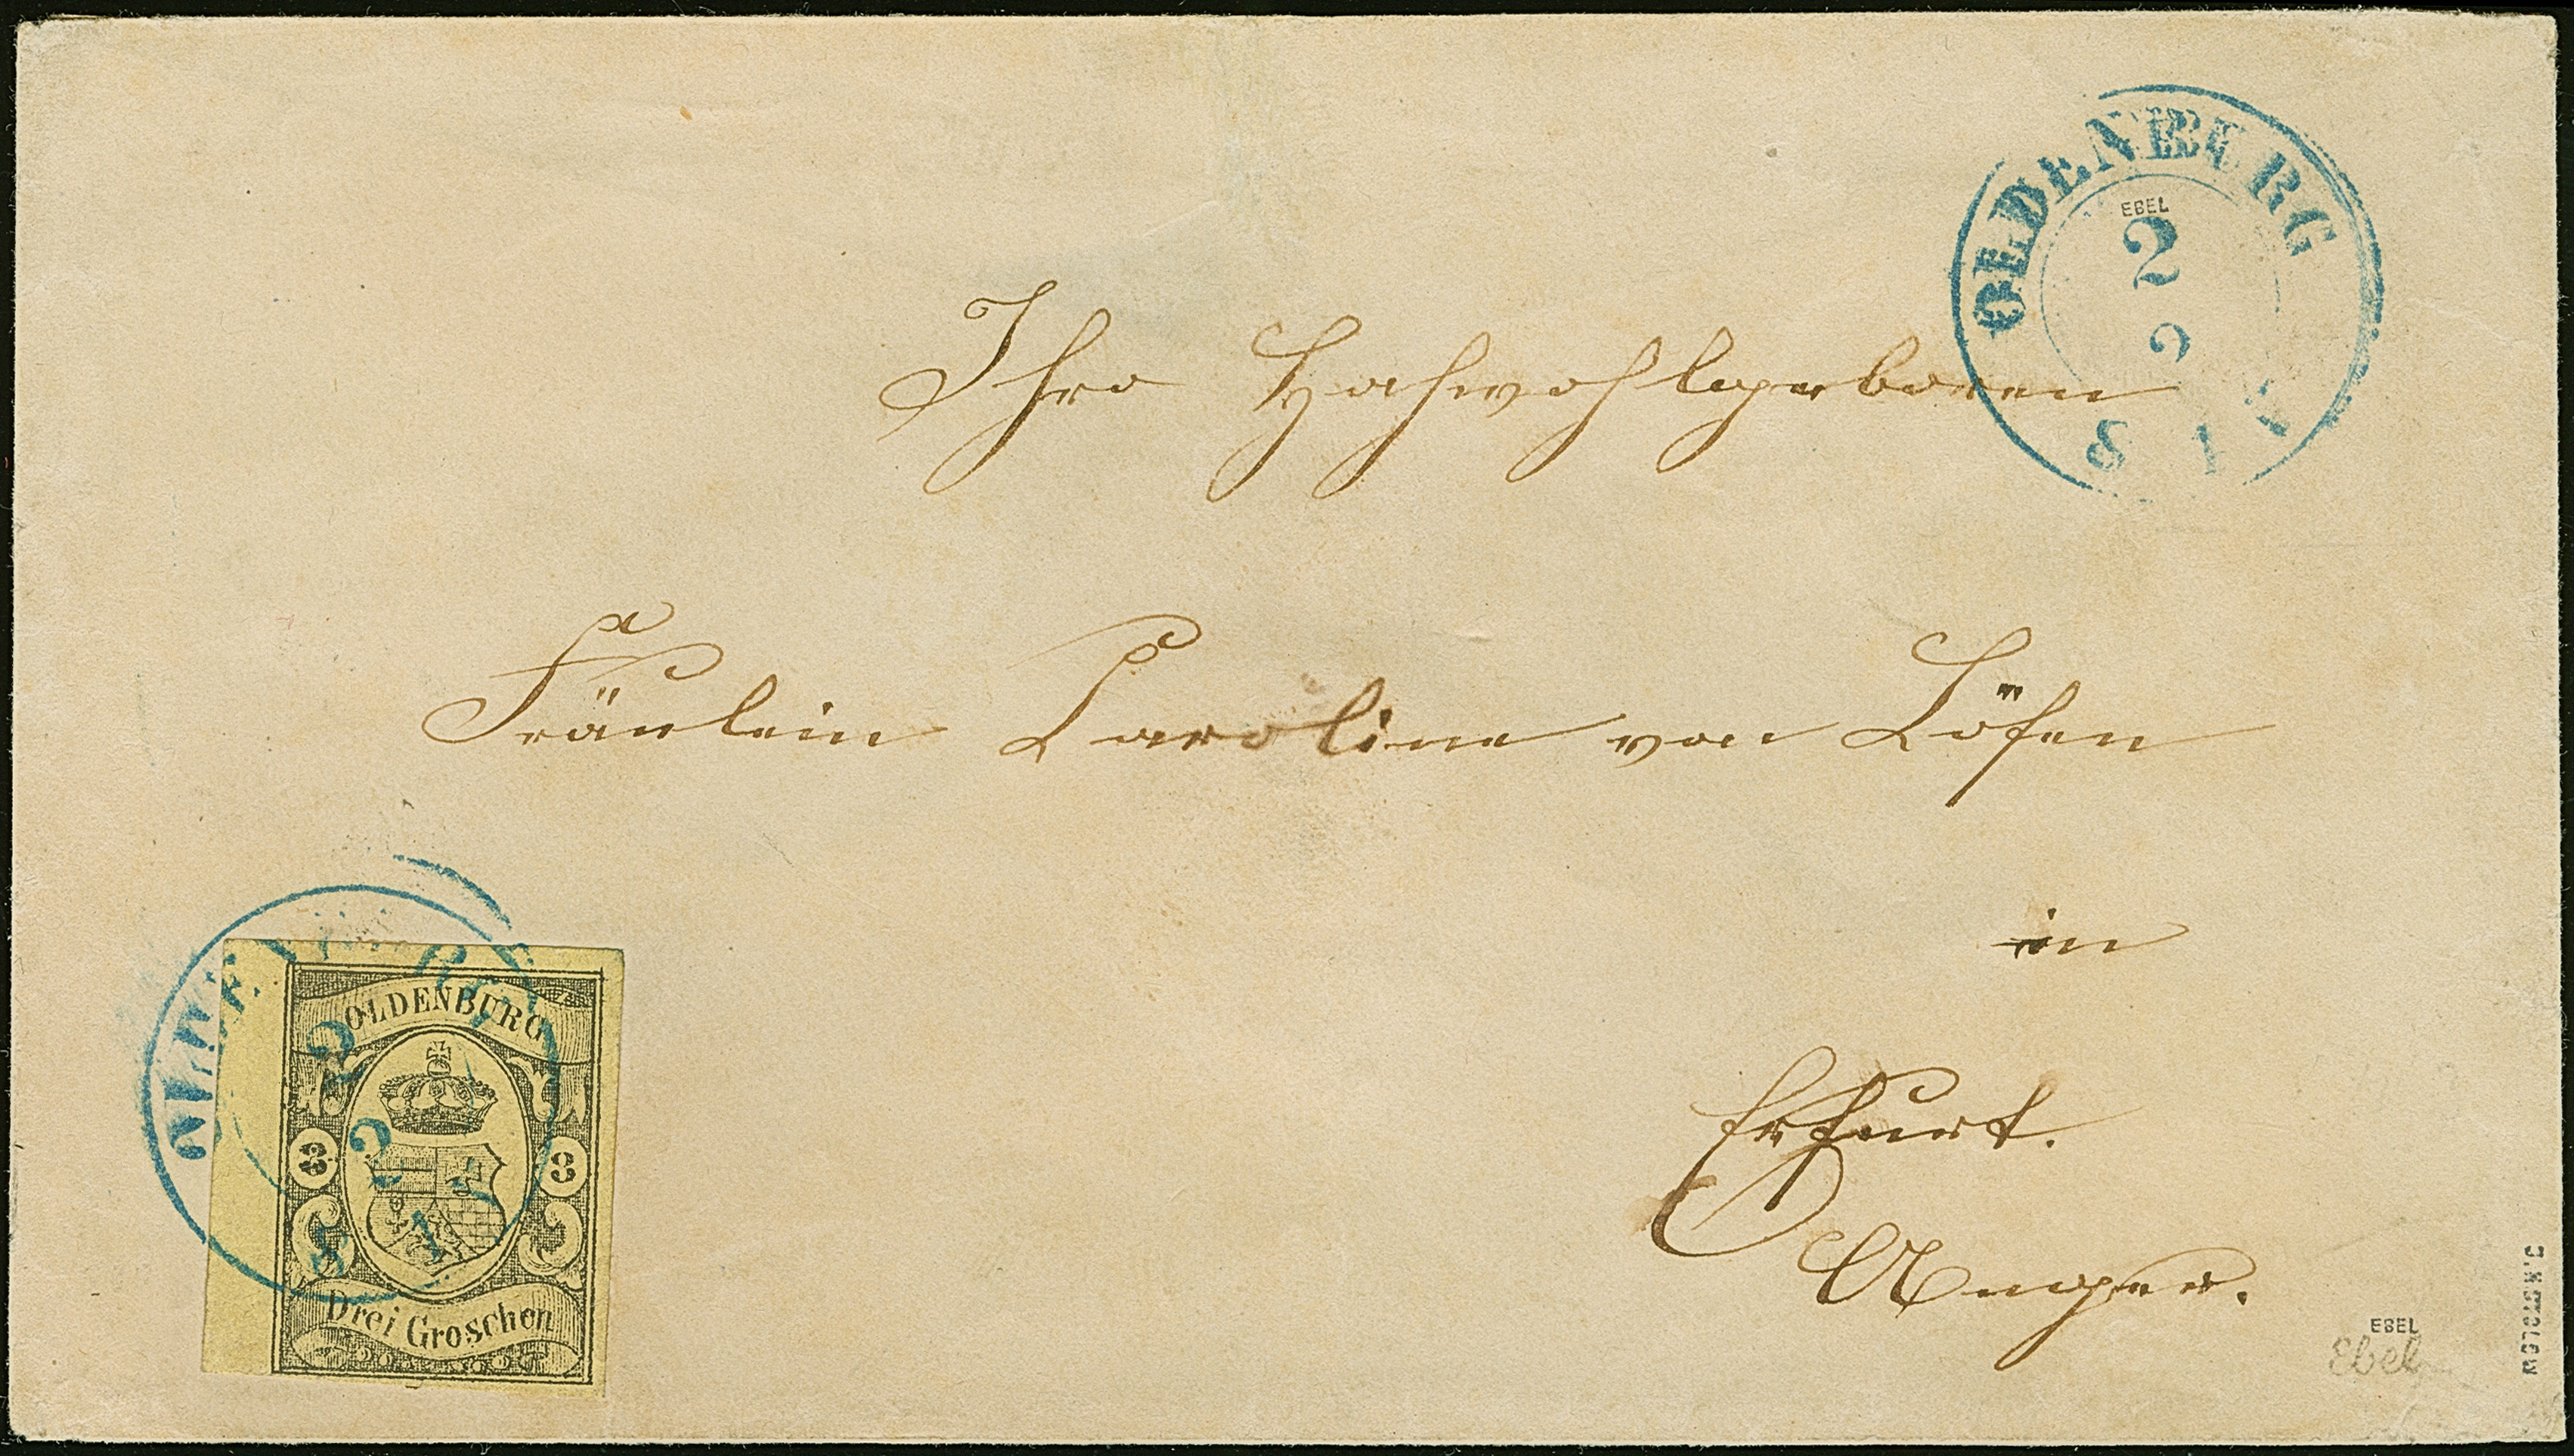 OLDENBURG
EBEL
2
2
8 1
Ihro Hochwohlgeboren
Fräulein Caroline von Lösen
in
Erfurt.
Anger.
OLDENBURG
2
2
8 1
OLDENBURG
3 3
Drei Groschen
EBEL
Ebel